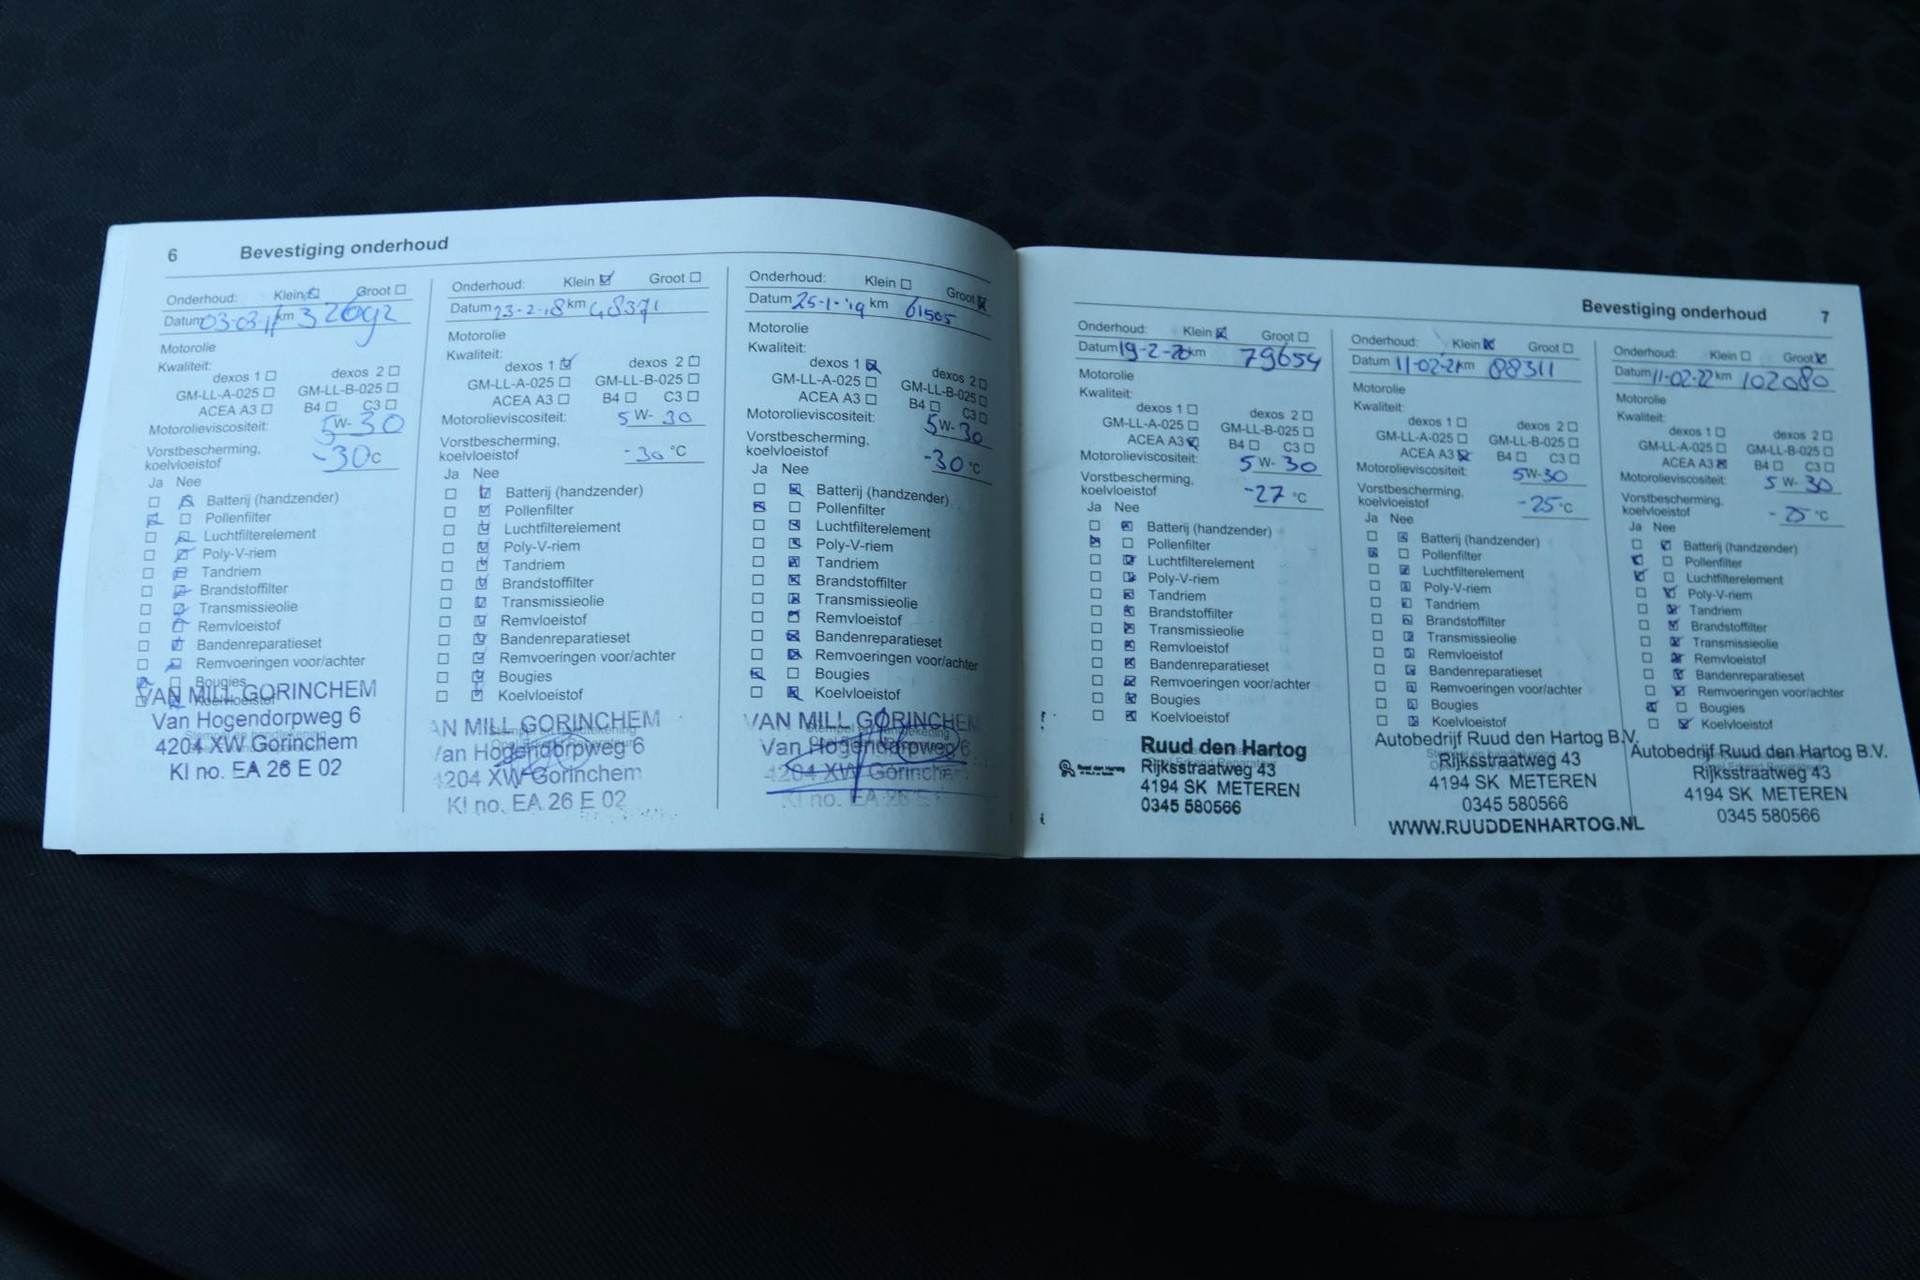 6 Bevestiging onderhoud
Onderhoud: Klein Groot
Datum 03-03-17 km 32692
Motorolie
Kwaliteit:
dexos 1 dexos 2
GM-LL-A-025 GM-LL-B-025
ACEA A3 B4 C3
Motorolieviscositeit: 5 W- 30
Vorstbescherming,
koelvloeistof -30 C
Ja Nee
Batterij (handzender)
Pollenfilter
Luchtfilterelement
Poly-V-riem
Tandriem
Brandstoffilter
Transmissieolie
Remvloeistof
Bandenreparatieset
Remvoeringen voor/achter
Bougies
Koelvloeistof
VAN MILL GORINCHEM
Van Hogendorpweg 6
4204 XW Gorinchem
KI no. EA 26 E 02
Onderhoud: Klein Groot
Datum 23-2-18 km 48371
Motorolie
Kwaliteit:
dexos 1 dexos 2
GM-LL-A-025 GM-LL-B-025
ACEA A3 B4 C3
Motorolieviscositeit: 5 W- 30
Vorstbescherming,
koelvloeistof -30 °C
Ja Nee
Batterij (handzender)
Pollenfilter
Luchtfilterelement
Poly-V-riem
Tandriem
Brandstoffilter
Transmissieolie
Remvloeistof
Bandenreparatieset
Remvoeringen voor/achter
Bougies
Koelvloeistof
AN MILL GORINCHEM
Van Hogendorpweg 6
4204 XW Gorinchem
KI no. EA 26 E 02
Onderhoud: Klein Groot
Datum 25-1-'19 km 61505
Motorolie
Kwaliteit:
dexos 1 dexos 2
GM-LL-A-025 GM-LL-B-025
ACEA A3 B4 C3
Motorolieviscositeit: 5 W- 30
Vorstbescherming,
koelvloeistof -30 °C
Ja Nee
Batterij (handzender)
Pollenfilter
Luchtfilterelement
Poly-V-riem
Tandriem
Brandstoffilter
Transmissieolie
Remvloeistof
Bandenreparatieset
Remvoeringen voor/achter
Bougies
Koelvloeistof
VAN MILL GORINCHEM
Van Hogendorpweg 6
4204 XW Gorinchem
KI no. EA 26 E
Bevestiging onderhoud 7
Onderhoud: Klein Groot
Datum 19-2-20 km 79654
Motorolie
Kwaliteit:
dexos 1 dexos 2
GM-LL-A-025 GM-LL-B-025
ACEA A3 B4 C3
Motorolieviscositeit: 5 W- 30
Vorstbescherming,
koelvloeistof -27 °C
Ja Nee
Batterij (handzender)
Pollenfilter
Luchtfilterelement
Poly-V-riem
Tandriem
Brandstoffilter
Transmissieolie
Remvloeistof
Bandenreparatieset
Remvoeringen voor/achter
Bougies
Koelvloeistof
Ruud den Hartog
Rijksstraatweg 43
4194 SK METEREN
0345 580566
Onderhoud: Klein Groot
Datum 11-02-21 km 88311
Motorolie
Kwaliteit:
dexos 1 dexos 2
GM-LL-A-025 GM-LL-B-025
ACEA A3 B4 C3
Motorolieviscositeit: 5 W- 30
Vorstbescherming,
koelvloeistof -25 °C
Ja Nee
Batterij (handzender)
Pollenfilter
Luchtfilterelement
Poly-V-riem
Tandriem
Brandstoffilter
Transmissieolie
Remvloeistof
Bandenreparatieset
Remvoeringen voor/achter
Bougies
Koelvloeistof
Autobedrijf Ruud den Hartog B.V.
Rijksstraatweg 43
4194 SK METEREN
0345 580566
WWW.RUUDDENHARTOG.NL
Onderhoud: Klein Groot
Datum 11-02-22 km 102080
Motorolie
Kwaliteit:
dexos 1 dexos 2
GM-LL-A-025 GM-LL-B-025
ACEA A3 B4 C3
Motorolieviscositeit: 5 W- 30
Vorstbescherming,
koelvloeistof -25 °C
Ja Nee
Batterij (handzender)
Pollenfilter
Luchtfilterelement
Poly-V-riem
Tandriem
Brandstoffilter
Transmissieolie
Remvloeistof
Bandenreparatieset
Remvoeringen voor/achter
Bougies
Koelvloeistof
Autobedrijf Ruud den Hartog B.V.
Rijksstraatweg 43
4194 SK METEREN
0345 580566